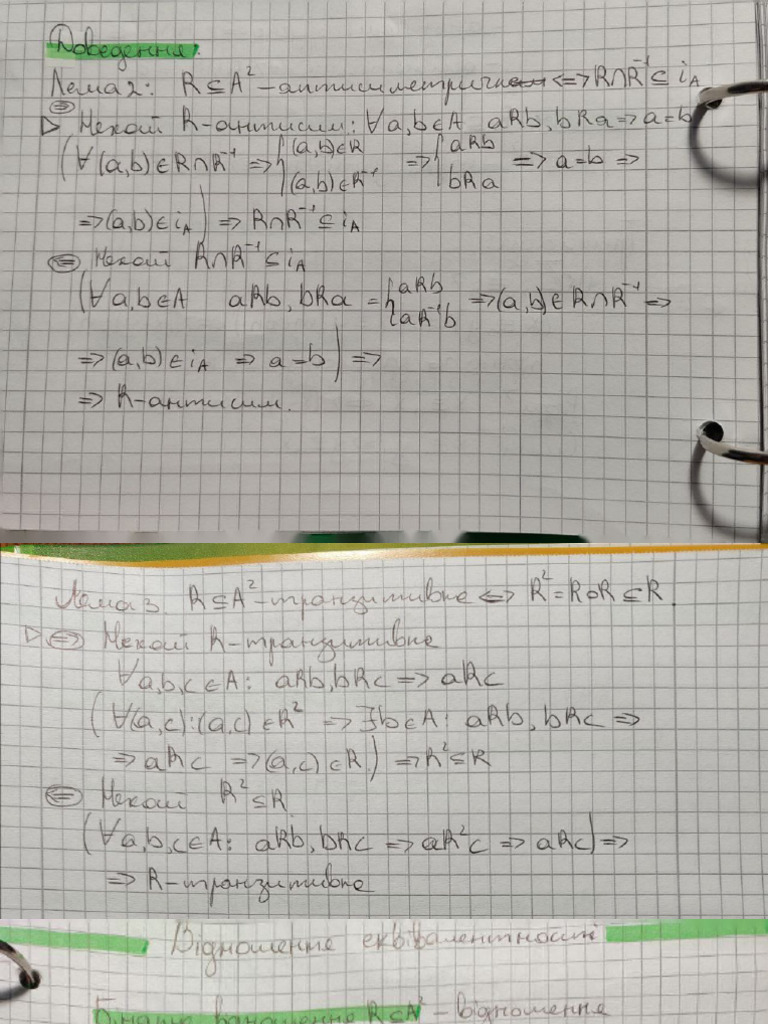 Доведення.
Лема 2: R ⊆ A² – антисиметричне ⟺ R∩R⁻¹ ⊆ i_A
▷ ⊜ Нехай R-антисим: ∀a,b∈A aRb, bRa ⇒ a=b
(∀(a,b)∈R∩R⁻¹ ⇒ {(a,b)∈R (a,b)∈R⁻¹ ⇒ {aRb bRa ⇒ a=b ⇒
⇒ (a,b)∈i_A) ⇒ R∩R⁻¹ ⊆ i_A
⊜ Нехай R∩R⁻¹ ⊆ i_A
(∀a,b∈A aRb, bRa = {aRb aR⁻¹b ⇒ (a,b)∈R∩R⁻¹ ⇒
⇒ (a,b)∈i_A ⇒ a=b) ⇒
⇒ R-антисим.
Лема 3. R ⊆ A² – транзитивне ⟺ R² = R∘R ⊆ R.
▷ ⊜ Нехай R-транзитивне
∀a,b,c∈A: aRb, bRc ⇒ aRc
(∀(a,c):(a,c)∈R² ⇒ ∃b∈A: aRb, bRc ⇒
⇒ aRc ⇒ (a,c)∈R) ⇒ R² ⊆ R
⊜ Нехай R² ⊆ R
(∀a,b,c∈A: aRb, bRc ⇒ aR²c ⇒ aRc) ⇒
⇒ R-транзитивне
Відношення еквівалентності
Бінарне відношення R ⊆ A² – відношення